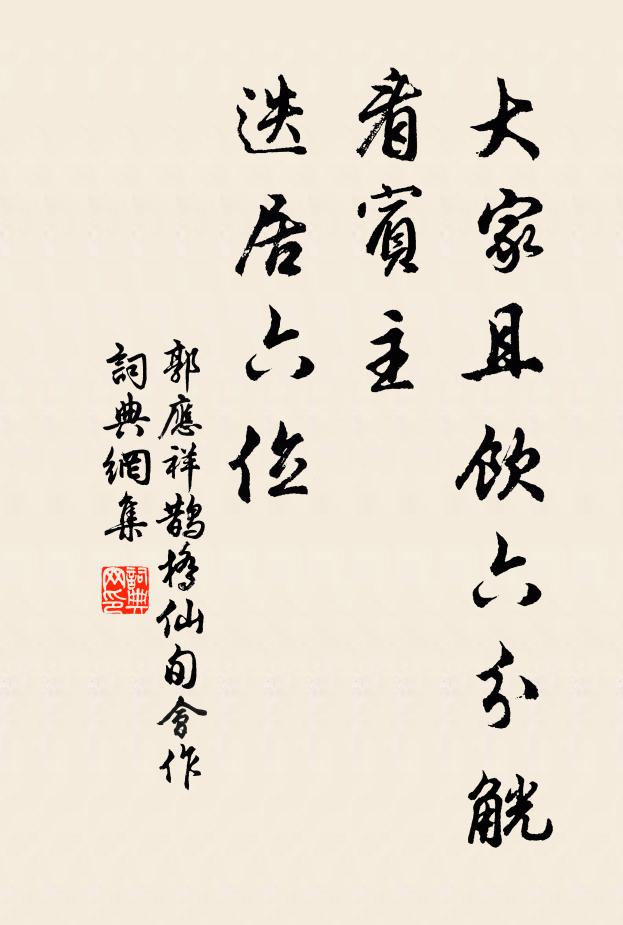 大家且飲六分觥
看賓主
迭居六位
郭應祥鵲橋仙旬會作
詞典網集
詞典网印